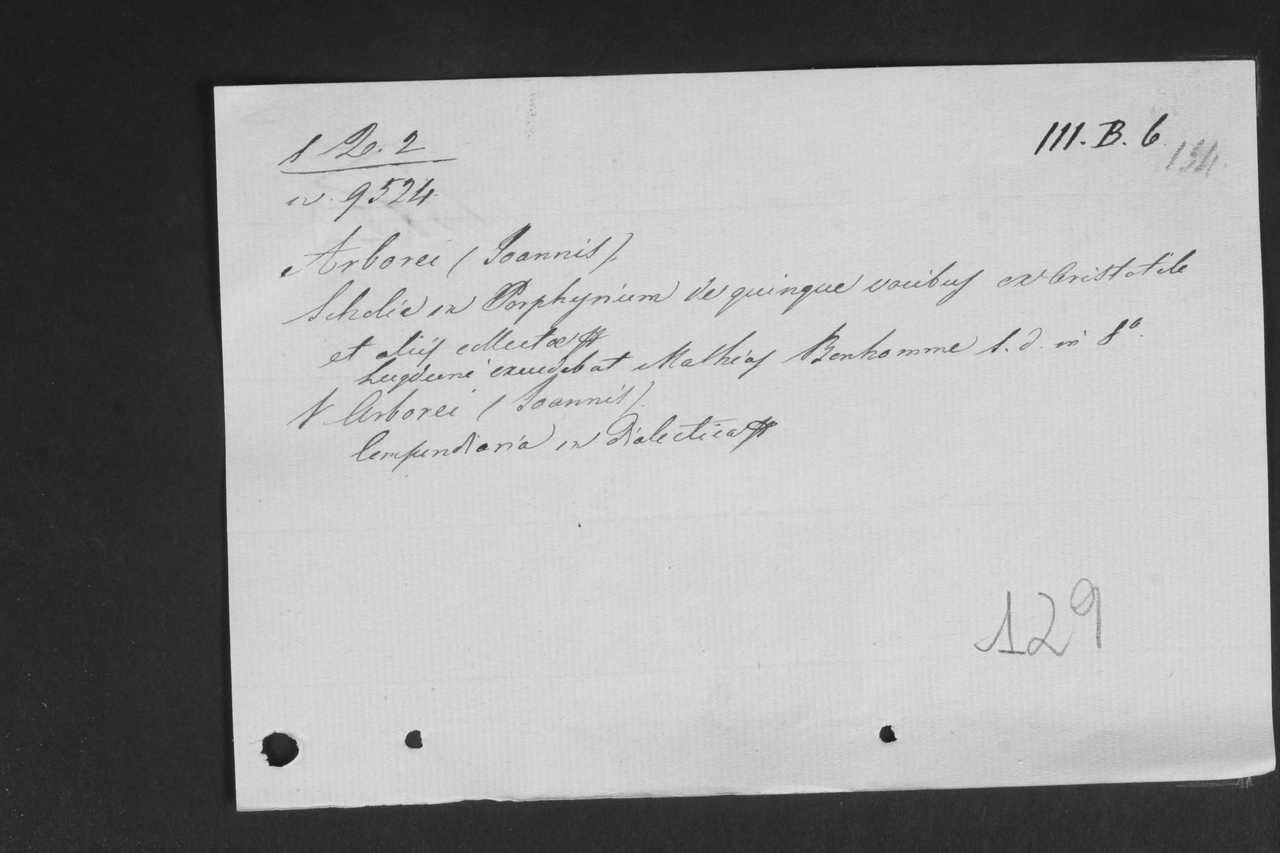 III. B. 6
134
1 Q. 2
n. 9524
Arborei (Joannis).
Scholia in Porphyrium de quinque vocibus ex Aristotile
et aliis collectae
Lugduni excudebat Mathias Bonhomme s. d. in 8º.
V Arborei (Joannis).
Compendiaria in dialectica
129